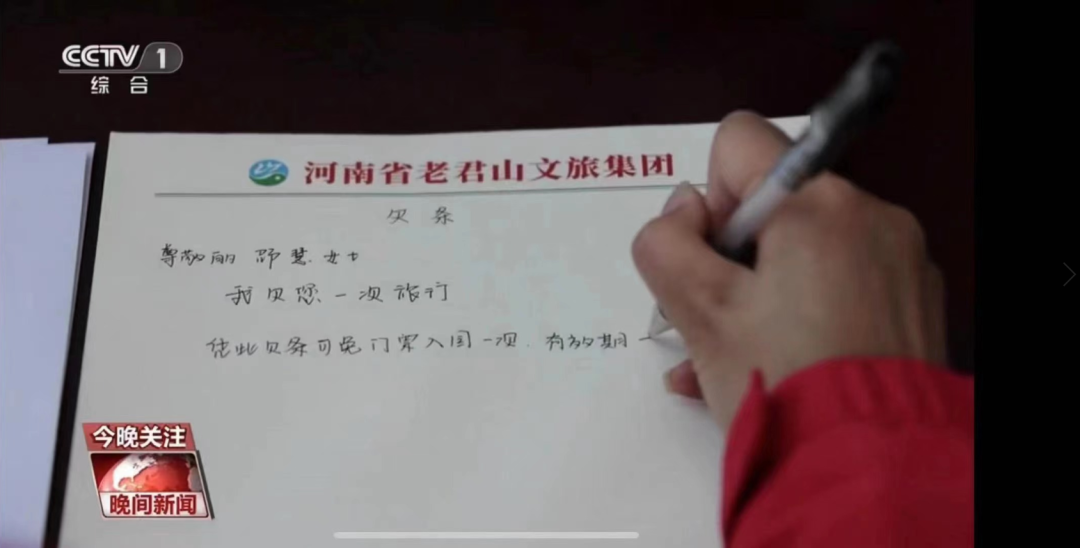 CCTV 1
综合
河南省老君山文旅集团
欠条
尊敬的 邵慧 女士
我欠您一次旅行
凭此欠条可免门票入园一次. 有效期一
今晚关注
晚间新闻